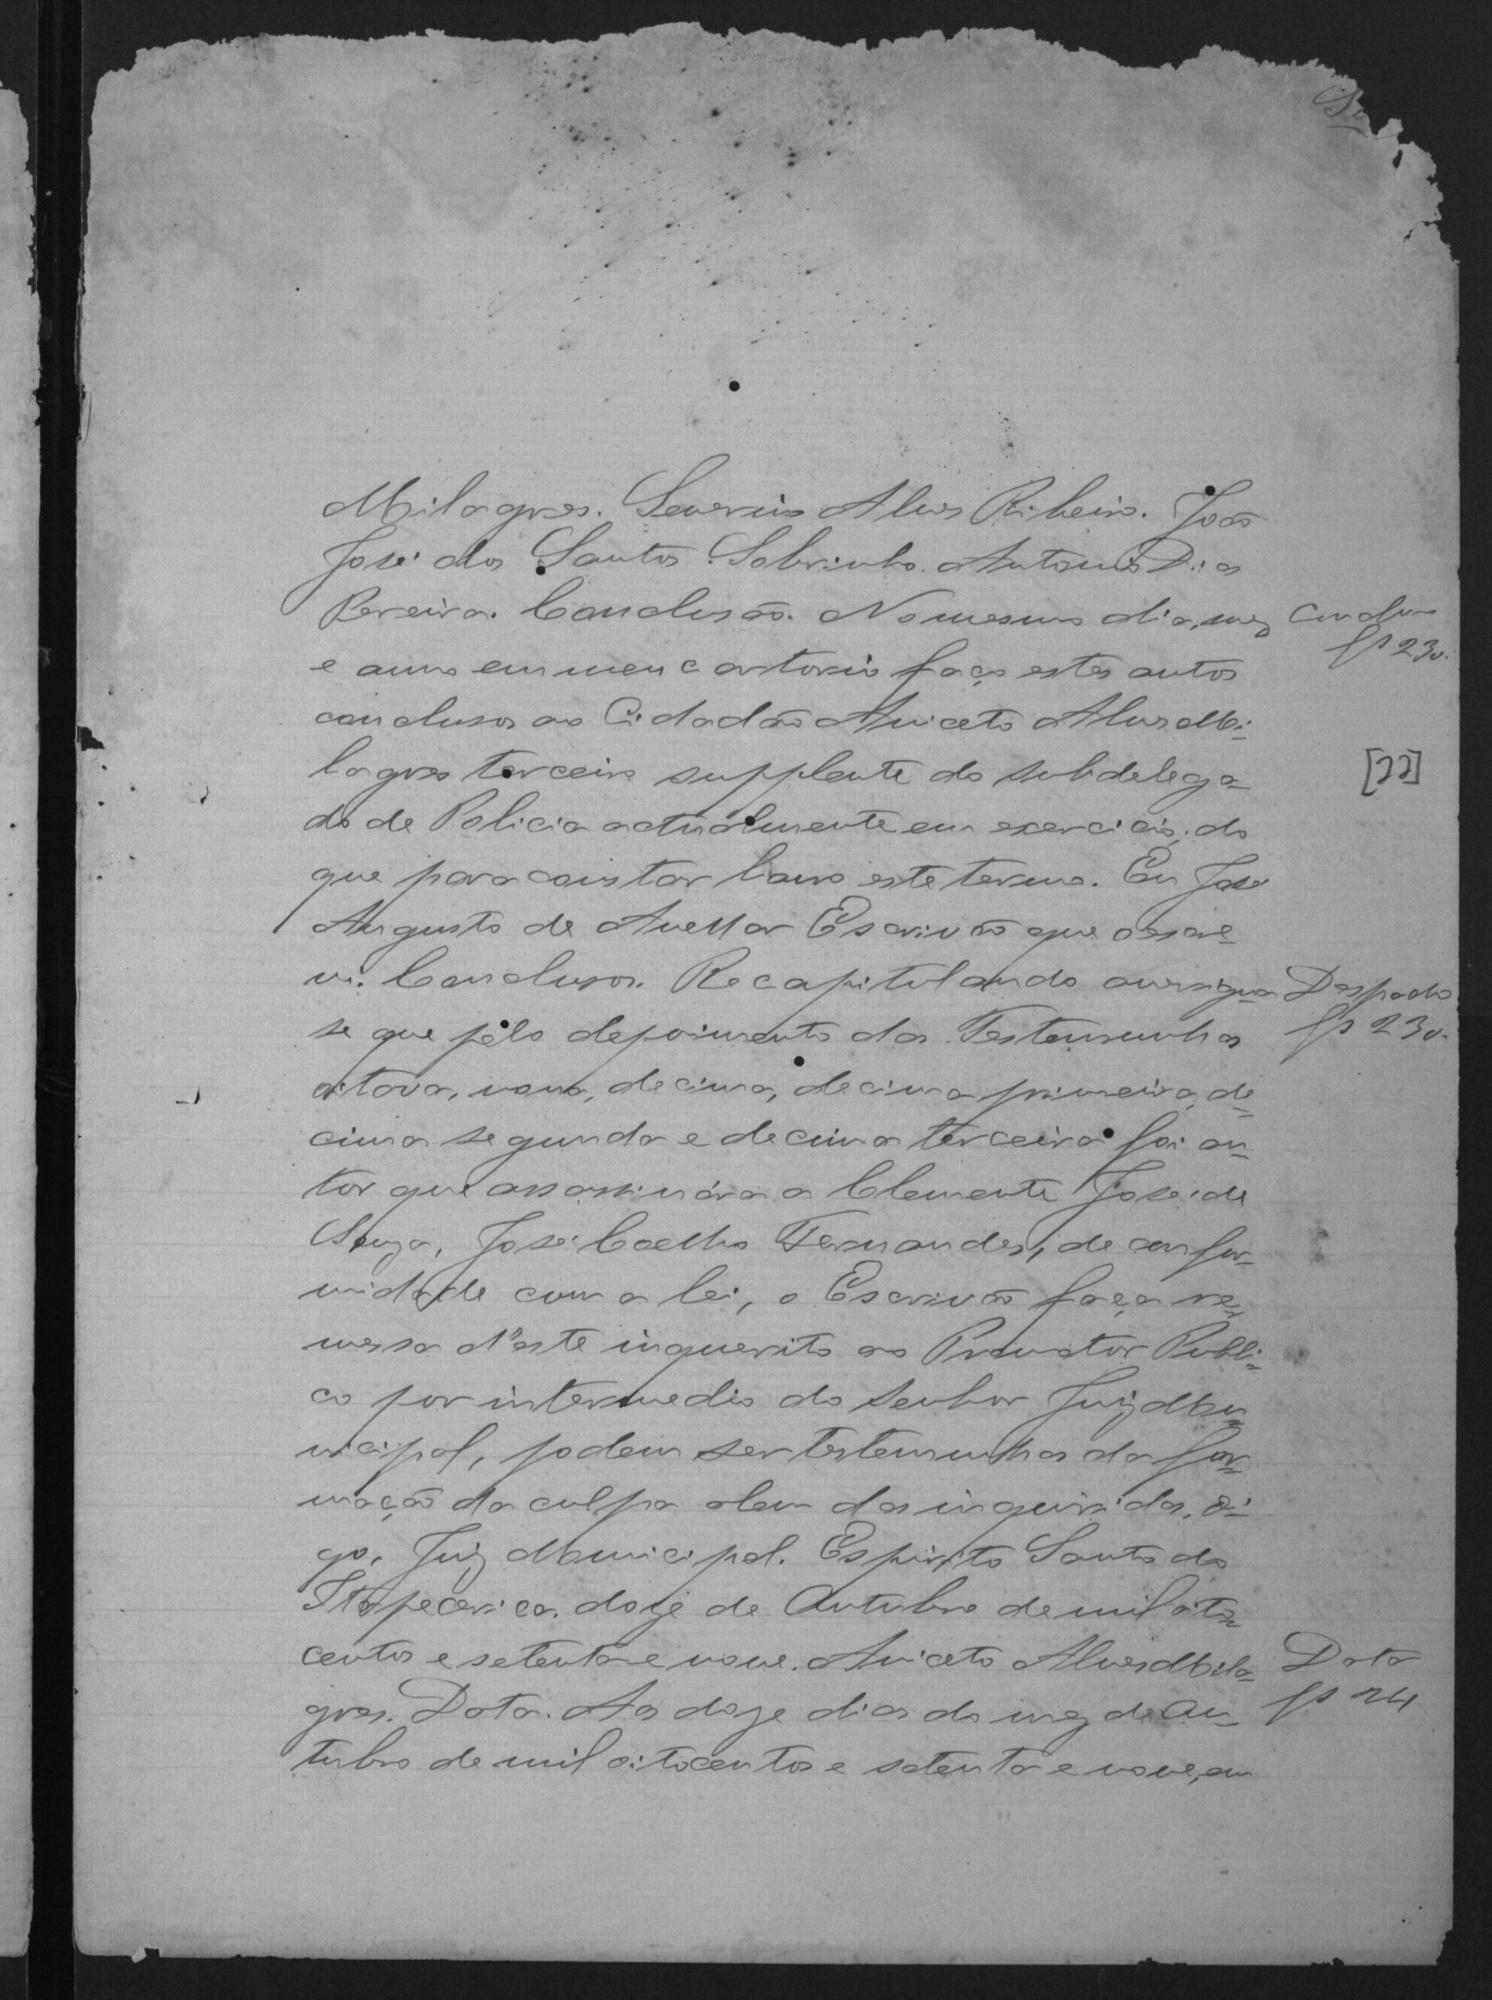 Milagres. Severino Alves Ribeiro. João
José dos Santos Sobrinho. Antonio Dias
Pereira. Conclusão. No mesmo dia, mez
Conclusão
fs 23v.
e anno em meu cartorio faço estes autos
conclusos ao Cidadão Aniceto Alves Mi-
lagres terceiro supplente do subdelega-
[22]
do de Policia actualmente em exercicio, do
que para constar lavro este termo. Eu José
Augusto de Avellar Escrivão que o escre-
vi. Conclusos. Recapitulando averigua
Despacho
fs 23v.
se que pelo depoimento das Testemunhas
oitava, nona, decima, decima primeira, de-
cima segunda e decima terceira foi au-
tor que assassinára a Clemente José de
Souza, José Coelho Fernandes, de confor-
midade com a lei, o Escrivão faça re-
messa d'este inquerito ao Promotor Publi-
co por intermedio do Senhor Juiz Mu-
nicipal, podem ser testemunhas da for-
mação da culpa alem das inquiridas, di-
go, Juiz Municipal. Espirito Santo do
Itapecerica, doze de Outubro de mil oito-
centos e setenta e nove. Aniceto Alves Mila-
Data
fs 24
gres. Data. Aos doze dias do mez de Ou-
tubro de mil oitocentos e setenta e nove, em